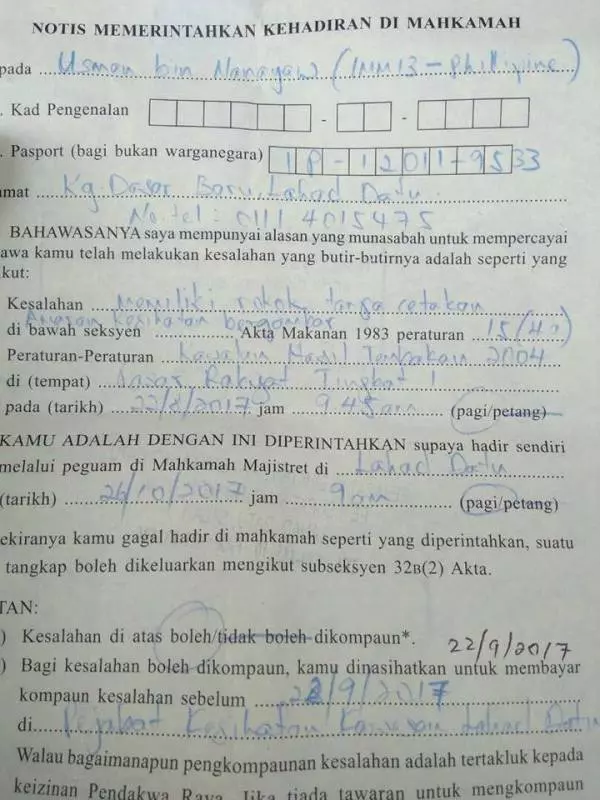 NOTIS MEMERINTAHKAN KEHADIRAN DI MAHKAMAH
pada Usman bin (IMM13 - Philipine)
. Kad Pengenalan - -
. Pasport (bagi bukan warganegara) IP-12011-9533
mat Kg. Dasar Baru, Lahad Datu
No. tel : 0111 4015475
BAHAWASANYA saya mempunyai alasan yang munasabah untuk mempercayai
awa kamu telah melakukan kesalahan yang butir-butirnya adalah seperti yang
kut:
Kesalahan Memiliki rokok tanpa cetakan
Amaran kesihatan bergambar
di bawah seksyen Akta Makanan 1983 peraturan 15(4a)
Peraturan-Peraturan Kawalan Hasil Tembakau 2004
di (tempat) Pasar Rakyat Tingkat 1
pada (tarikh) 22/8/2017 jam 9.45am (pagi/petang)
KAMU ADALAH DENGAN INI DIPERINTAHKAN supaya hadir sendiri
melalui peguam di Mahkamah Majistret di Lahad Datu
(tarikh) 26/10/2017 jam 9am (pagi/petang)
ekiranya kamu gagal hadir di mahkamah seperti yang diperintahkan, suatu
tangkap boleh dikeluarkan mengikut subseksyen 32B(2) Akta.
TAN:
) Kesalahan di atas boleh/tidak boleh dikompaun*. 22/9/2017
) Bagi kesalahan boleh dikompaun, kamu dinasihatkan untuk membayar
kompaun kesalahan sebelum 22/9/2017
di Pejabat Kesihatan Kawasan Lahad Datu
Walau bagaimanapun pengkompaunan kesalahan adalah tertakluk kepada
keizinan Pendakwa Raya. Jika tiada tawaran untuk mengkompaun